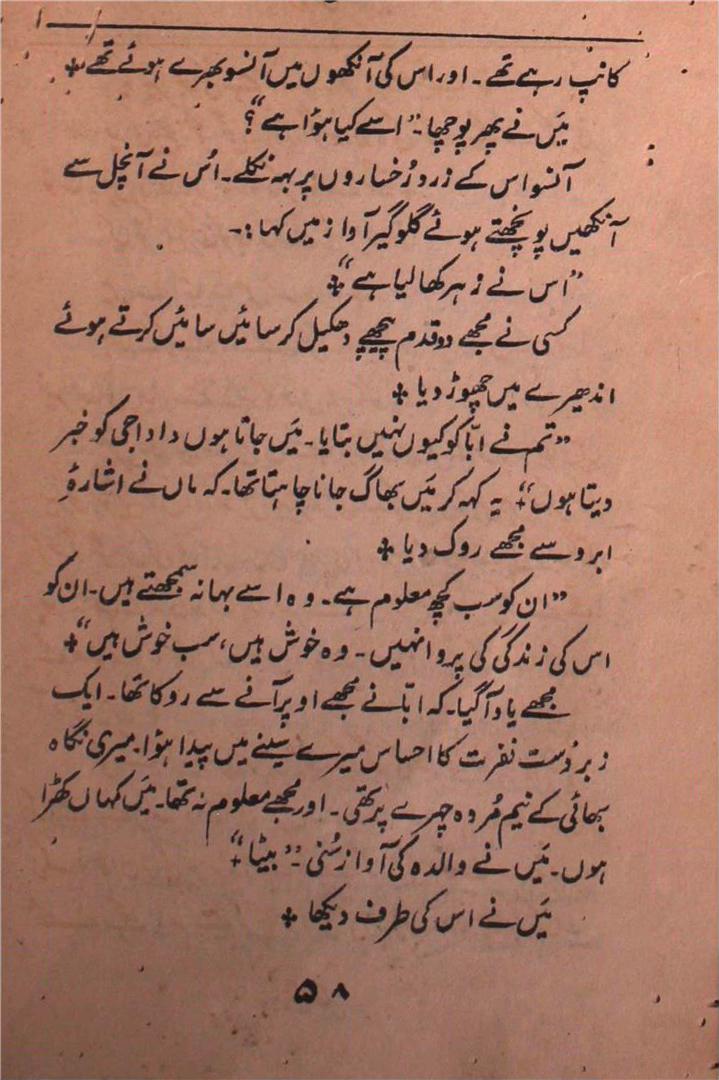 کانپ رہے تھے۔ اور اس کی آنکھوں میں آنسو بھرے ہوئے تھے ٭
میَں نے پھر پوچھا۔ “اسے کیا ہؤا ہے”؟
آنسو اس کے زرد رُخساروں پر بہہ نکلے۔ اُس نے آنچل سے
آنکھیں پونچھتے ہوئے گلوگیر آواز میں کہا:۔
“اس نے زہر کھا لیا ہے”٭
کسی نے مجھے دو قدم پیچھے دھکیل کر سائیں سائیں کرتے ہوئے
اندھیرے میں چھوڑ دیا ٭
“تم نے ابّا کو کیوں نہیں بتایا۔ میَں جاتا ہوں دادا جی کو خبر
دیتا ہوں”٭ یہ کہہ کر میَں بھاگ جانا چاہتا تھا۔ کہ ماں نے اشارۂِ
ابرو سے مجھے روک دیا ٭
“ان کو سب کچھ معلوم ہے۔ وہ اسے بہانہ سمجھتے ہیں۔ ان کو
اس کی زندگی کی پروا نہیں۔ وہ خوش ہیں، سب خوش ہیں”٭
مجھے یاد آ گیا۔ کہ ابّا نے مجھے اوپر آنے سے روکا تھا۔ ایک
زبردست نفرت کا احساس میرے سینے میں پیدا ہؤا۔ میری نگاہ
بھائی کے نیم مُردہ چہرے پر تھی۔ اور مجھے معلوم نہ تھا۔ میَں کہاں کھڑا
ہوں۔ میَں نے والدہ کی آواز سُنی۔ “بیٹا”٭
میَں نے اس کی طرف دیکھا ٭
۵۸